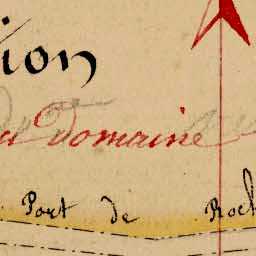 ion
u Domaine
Port de Roch